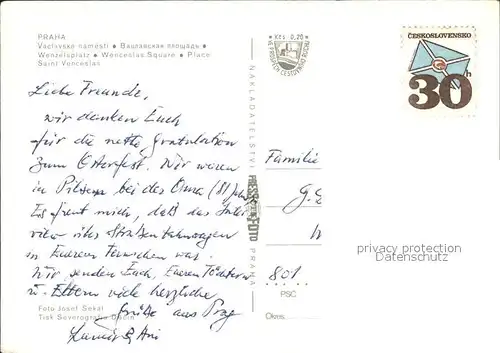 PRAHA
Václavské náměstí • Вацлавская площадь •
Wenzelsplatz • Wenceslas Square • Place
Saint Venceslas
Kčs 0,20
VE PROSPĚCH CESTOVNÍHO RUCHU
ČESKOSLOVENSKO
30h
Liebe Freunde,
wir danken Euch
für die nette Gratulation
zum Osterfest. Wir waren
in Pilsen bei der Oma (81 Jahre)
Es freut mich, daß das Inter
view über Straßenbahnwagen
in Eurem Fernsehen war.
Wir senden Euch, Euren Töchtern
u. Eltern viele herzliche
Grüße aus Prag
Foto Josef Sekal
Tisk Severografia Děčín
NAKLADATELSTVÍ
PRESSFOTO
PRAHA
Familie
G.
801
PSČ
Okres
privacy protection
Datenschutz